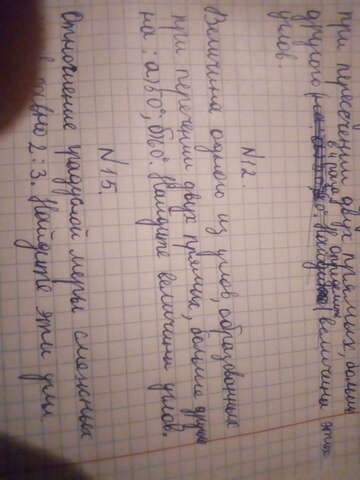 при пересечении двух прямых, больше
другого в 4 раза. Определить величины этих
углов.
N12.
Величина одного из углов, образованных
при пересечении двух прямых, больше другого
на: а) 50°; б) 60°. Найдите величины углов.
N15.
Отношение градусной меры смежных
равно 2:3. Найдите эти углы